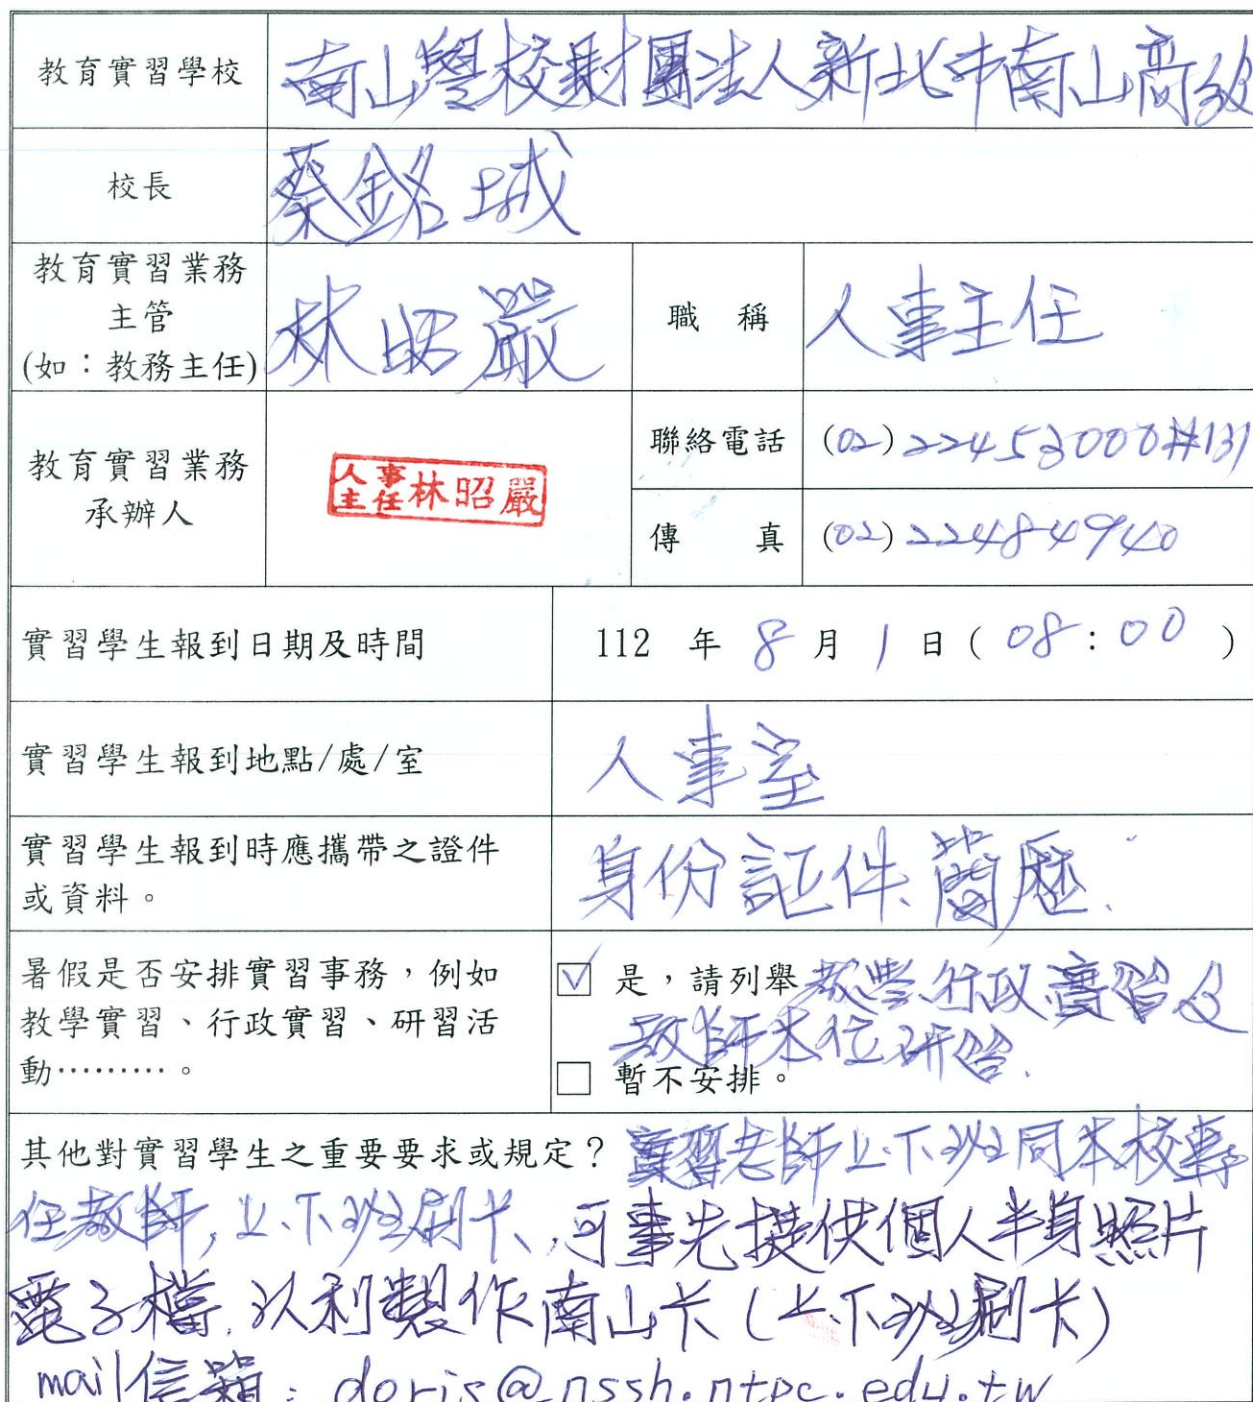 教育實習學校 南山學校財團法人新北市南山高級
校長 蔡銘城
教育實習業務
主管
(如：教務主任)
林昭嚴
職 稱
人事主任
教育實習業務
承辦人
人事
主任
林昭嚴
聯絡電話 (02)22453000#131
傳 真 (02)22484940
實習學生報到日期及時間 112 年 8 月 1 日 ( 08:00 )
實習學生報到地點/處/室 人事室
實習學生報到時應攜帶之證件
或資料。
身份証件、簡歷.
暑假是否安排實習事務，例如
教學實習、行政實習、研習活
動………。
☑ 是，請列舉教學、行政實習及
教師本位研習.
□ 暫不安排。
其他對實習學生之重要要求或規定？實習老師上、下班同本校專
任教師,上、下班刷卡、,可事先提供個人半身照片
電子檔,以利製作南山卡(上、下班刷卡)
mail信箱: doris@nssh.ntpc.edu.tw